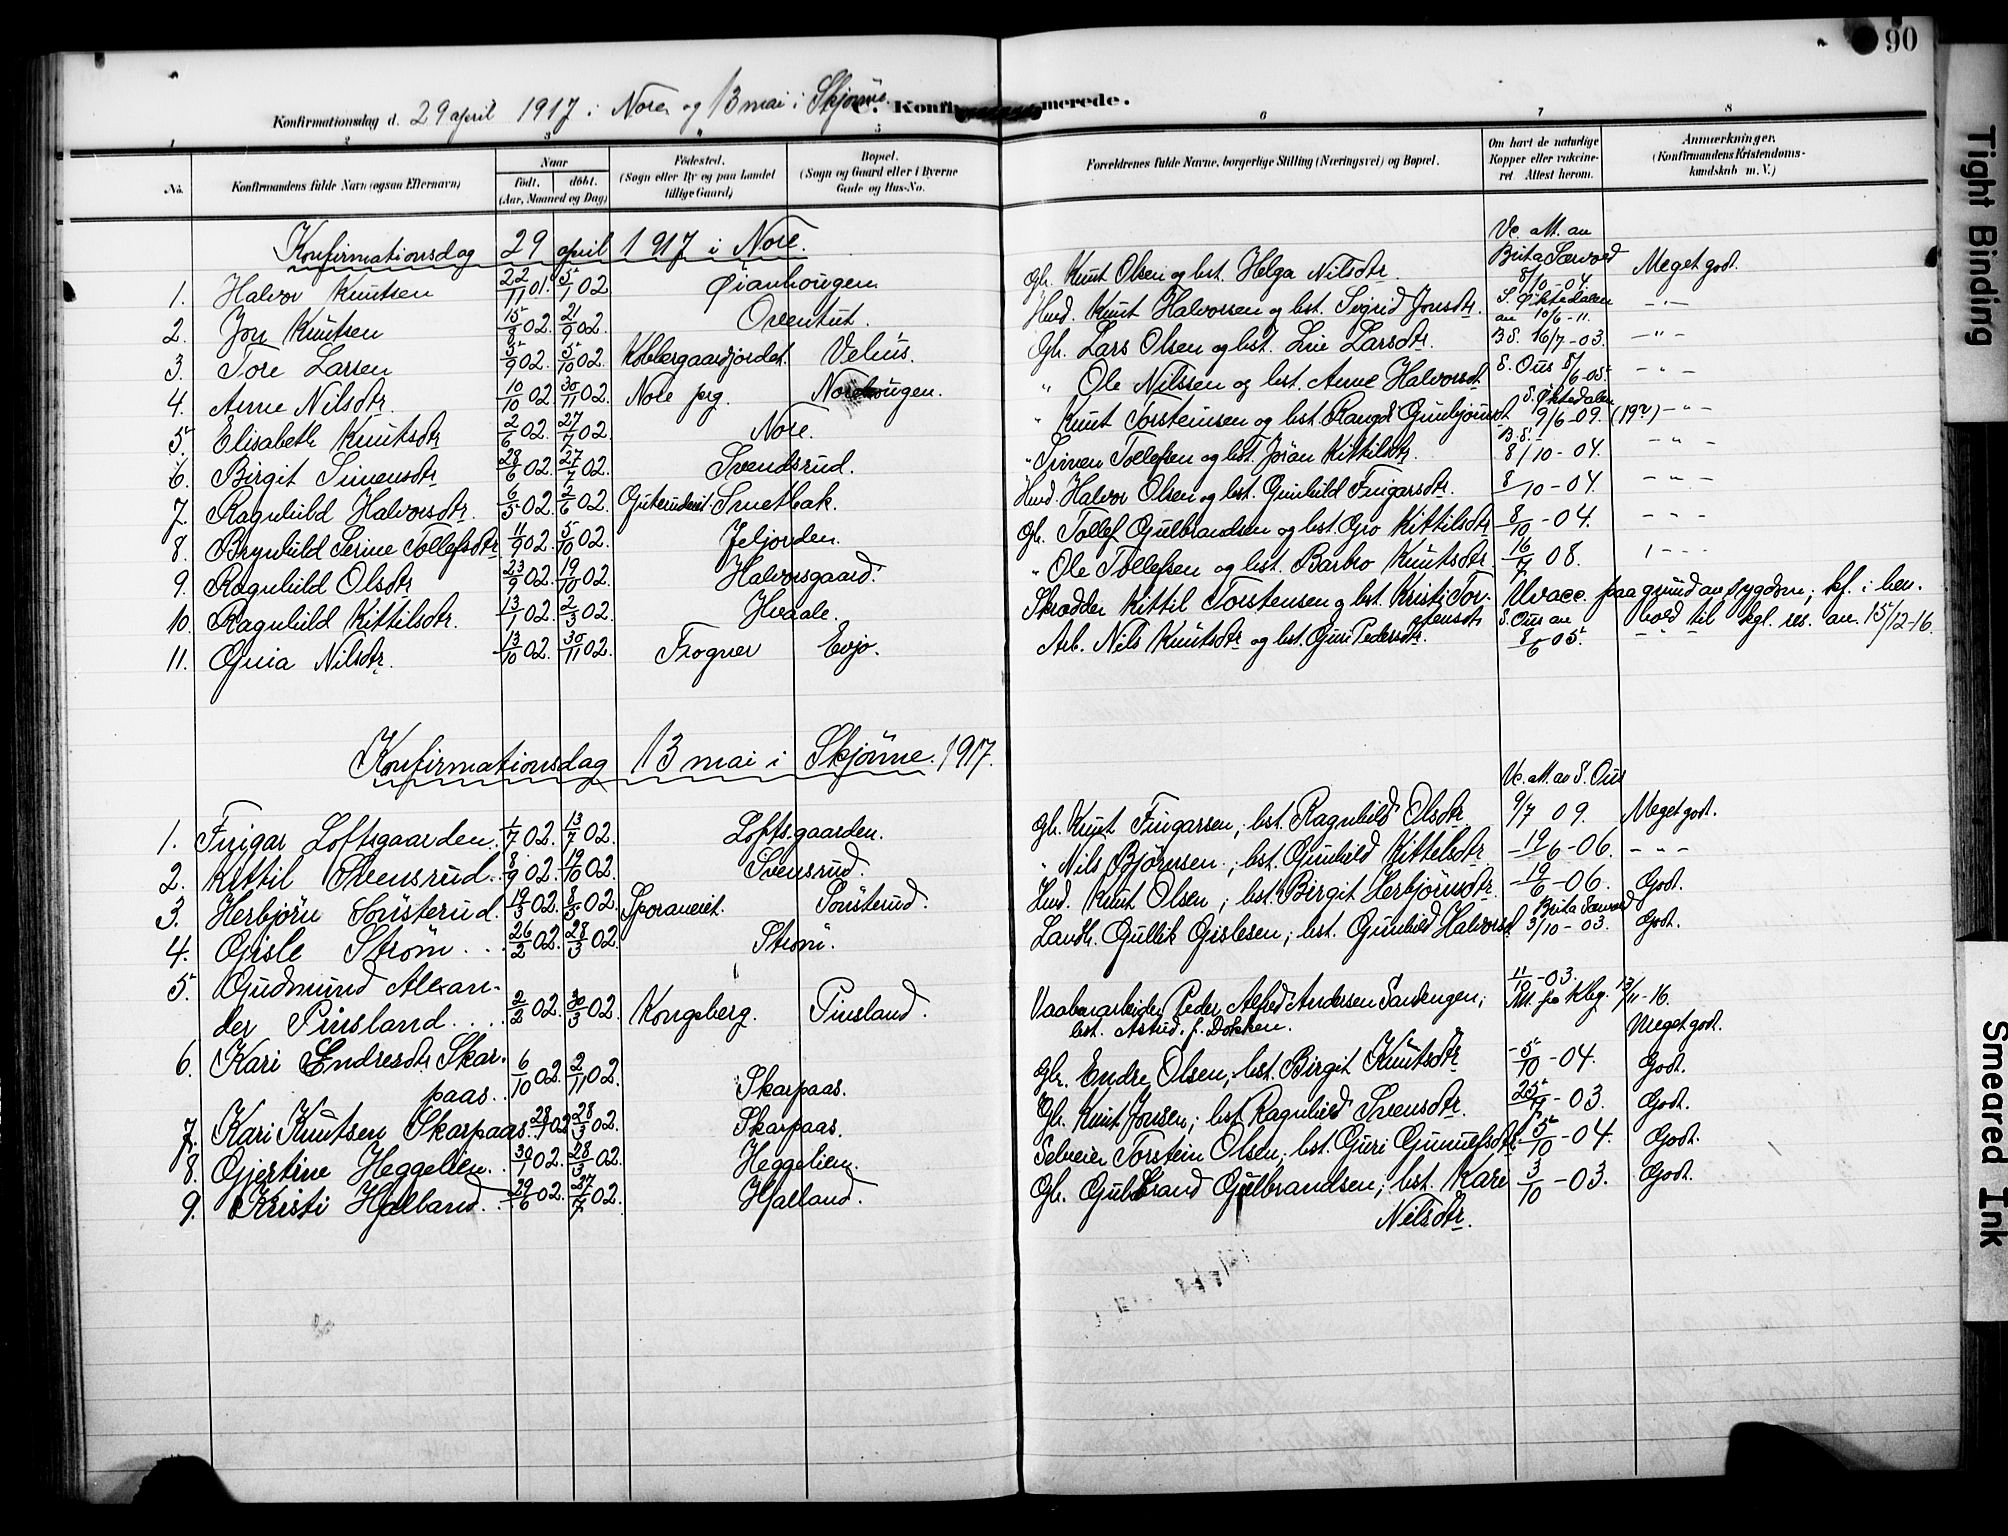 90
Konfirmationsdag d. 29 april 1917 i Nore og 13 mai i Skjønne. C. Konfirmerede.
1 2 3 4 5 6 7 8
No. Konfirmandens fulde Navn (ogsaa Efternavn) Naar født. døbt. (Aar, Maaned og Dag) Fødested. (Sogn eller By og paa Landet tillige Gaard) Bopæl. (Sogn og Gaard eller i Byerne Gade og Hus-No. Forældrenes fulde Navne, borgerlige Stilling (Næringsvei) og Bopæl. Om havt de naturlige Kopper eller vakcineret. Attest herom. Anmerkninger. (Konfirmandens Kristendomskundskab m. V.)
Konfirmationsdag 29 april 1917 i Nore. Vc. att. av
1. Halvor Knutsen 22/11 01. 5/1 02 Øianhougen. Gbr. Knut Olsen og hst. Helga Nilsdtr. Brita Sævord 8/10-04. Meget godt.
2. Jon Knutsen 15/8 02. 21/9 02. Oventut. Husd. Knut Halvorsen og hst. Sigrid Jonsdtr. S. Øktedalen av 10/6-11. -"-
3. Tore Larsen 5/9 02. 5/10 02. Kobbergaardjordet. Velius. Gbr. Lars Olsen og hst. Live Larsdtr. B.S. 16/7-03. -"-
4. Anne Nilsdtr. 10/10 02 30/11 02. Nore prg. Norehougen. " Ole Nilssen og hst. Anne Halvorsdt. S. Ous 8/6-05. -"-
5. Elisabeth Knutsdtr 2/6 02. 27/7 02. Nore. " Knut Torsteinsen og hst. Rangdi Gunbjørnsdt. S. Øktedalen 9/6-09. (19?) -"-
6. Birgit Simensdtr 28/6 02. 27/7 02. Svendsrud. " Simen Tollefsen og hst. Jøran Kittilsdtr. B.S. 8/10-04. -"-
7. Ragnhild Halvorsdtr. 6/5 02. 2/6 02. Guterudeiet. Smetbak. Husd. Halvor Olsen og hst. Gunhild Fingarsdtr. 8/10-04. -"-
8. Brynhild Serine Tollefsdtr 11/9 02. 5/10 02. Jeljorden. Gbr. Tollef Gulbrandsen og hst. Gro Kittilsdtr 8/10-04. -"-
9. Ragnhild Olsdtr 23/9 02. 19/10 02. Halvorsgaard. " Ole Tollefsen og hst. Barbro Knutsdtr. 16/7 08. -"-
10. Ragnhild Kittilsdtr. 13/1 02. 2/3 02. Hvaale. Skrædder Kittil Torstensen og hst. Kristi Torstensdtr Uvacc. paa grund av sygdom; kf. i henhold til kgl. res. av 15/12-16.
11. Guia Nilsdtr. 13/10 02. 30/11 02. Frogner Evjo. Arb. Nils Knutsdtr og hst. Guri Pedersdtr. S. Ous av 8/6 05. -"-
Konfirmationsdag 13 mai i Skjønne. 1917. Vc. att. av S. Ous
1. Fingar Loftsgaarden. 1/7 02. 13/7 02. Loftsgaarden. Gbr. Knut Fingarsen; hst. Ragnhild Olsdtr. 9/7 09. Meget godt.
2. Kittil Svensrud. 8/9 02. 19/10 02. Svensrud. " Nils Bjørnsen; hst. Gunhild Kittilsdtr. 19/6-06. -"-
3. Herbjørn Sønsterud. 19/3 02. 8/5 02. Sporaneiet. Sønsterud. Husd. Knut Olsen; hst. Birgit Herbjørnsdtr. 19/6-06. Godt.
4. Gisle Strøm. . . 26/2 02. 28/3 02. Strøm. Landh. Gullik Gislesen; hst. Gunhild Halvorsdt. Brita Sævord 3/10-03. Godt.
5. Gudmund Alexander Pinsland. . . 2/2 02. 30/3 02. Kongsberg. Pinsland. Vaabenarbeider Peder Alfred Andersen Sandengen; hst. Astrid f. Dokken. 11/10-03. Att. fra Kbg. 13/11-16. Meget godt.
6. Kari Endresdtr Skarpaas. . 6/10 02. 2/11 02. Skarpaas. Gbr. Endre Olsen; hst. Birgit Knutsdtr 5/10-04. Godt.
7. Kari Knutsen Skarpaas. 28/1 02 28/3 02. Skarpaas. Gbr. Knut Jonsen; hst Ragnhild Svensdtr. 25/9-03. Godt.
8. Gjertine Heggelien. . 30/1 02. 28/3 02. Heggelien. Selveier Torstein Olsen; hst. Guri Gunnulfsdtr. 5/10-04. Godt.
9. Kristi Hjalland. . 29/6 02. 27/7 02. Hjalland. Gbr. Gulbrand Gulbrandsen; hst. Kari Nilsdtr. 3/10-03. Godt.
Tight Binding
Smeared Ink